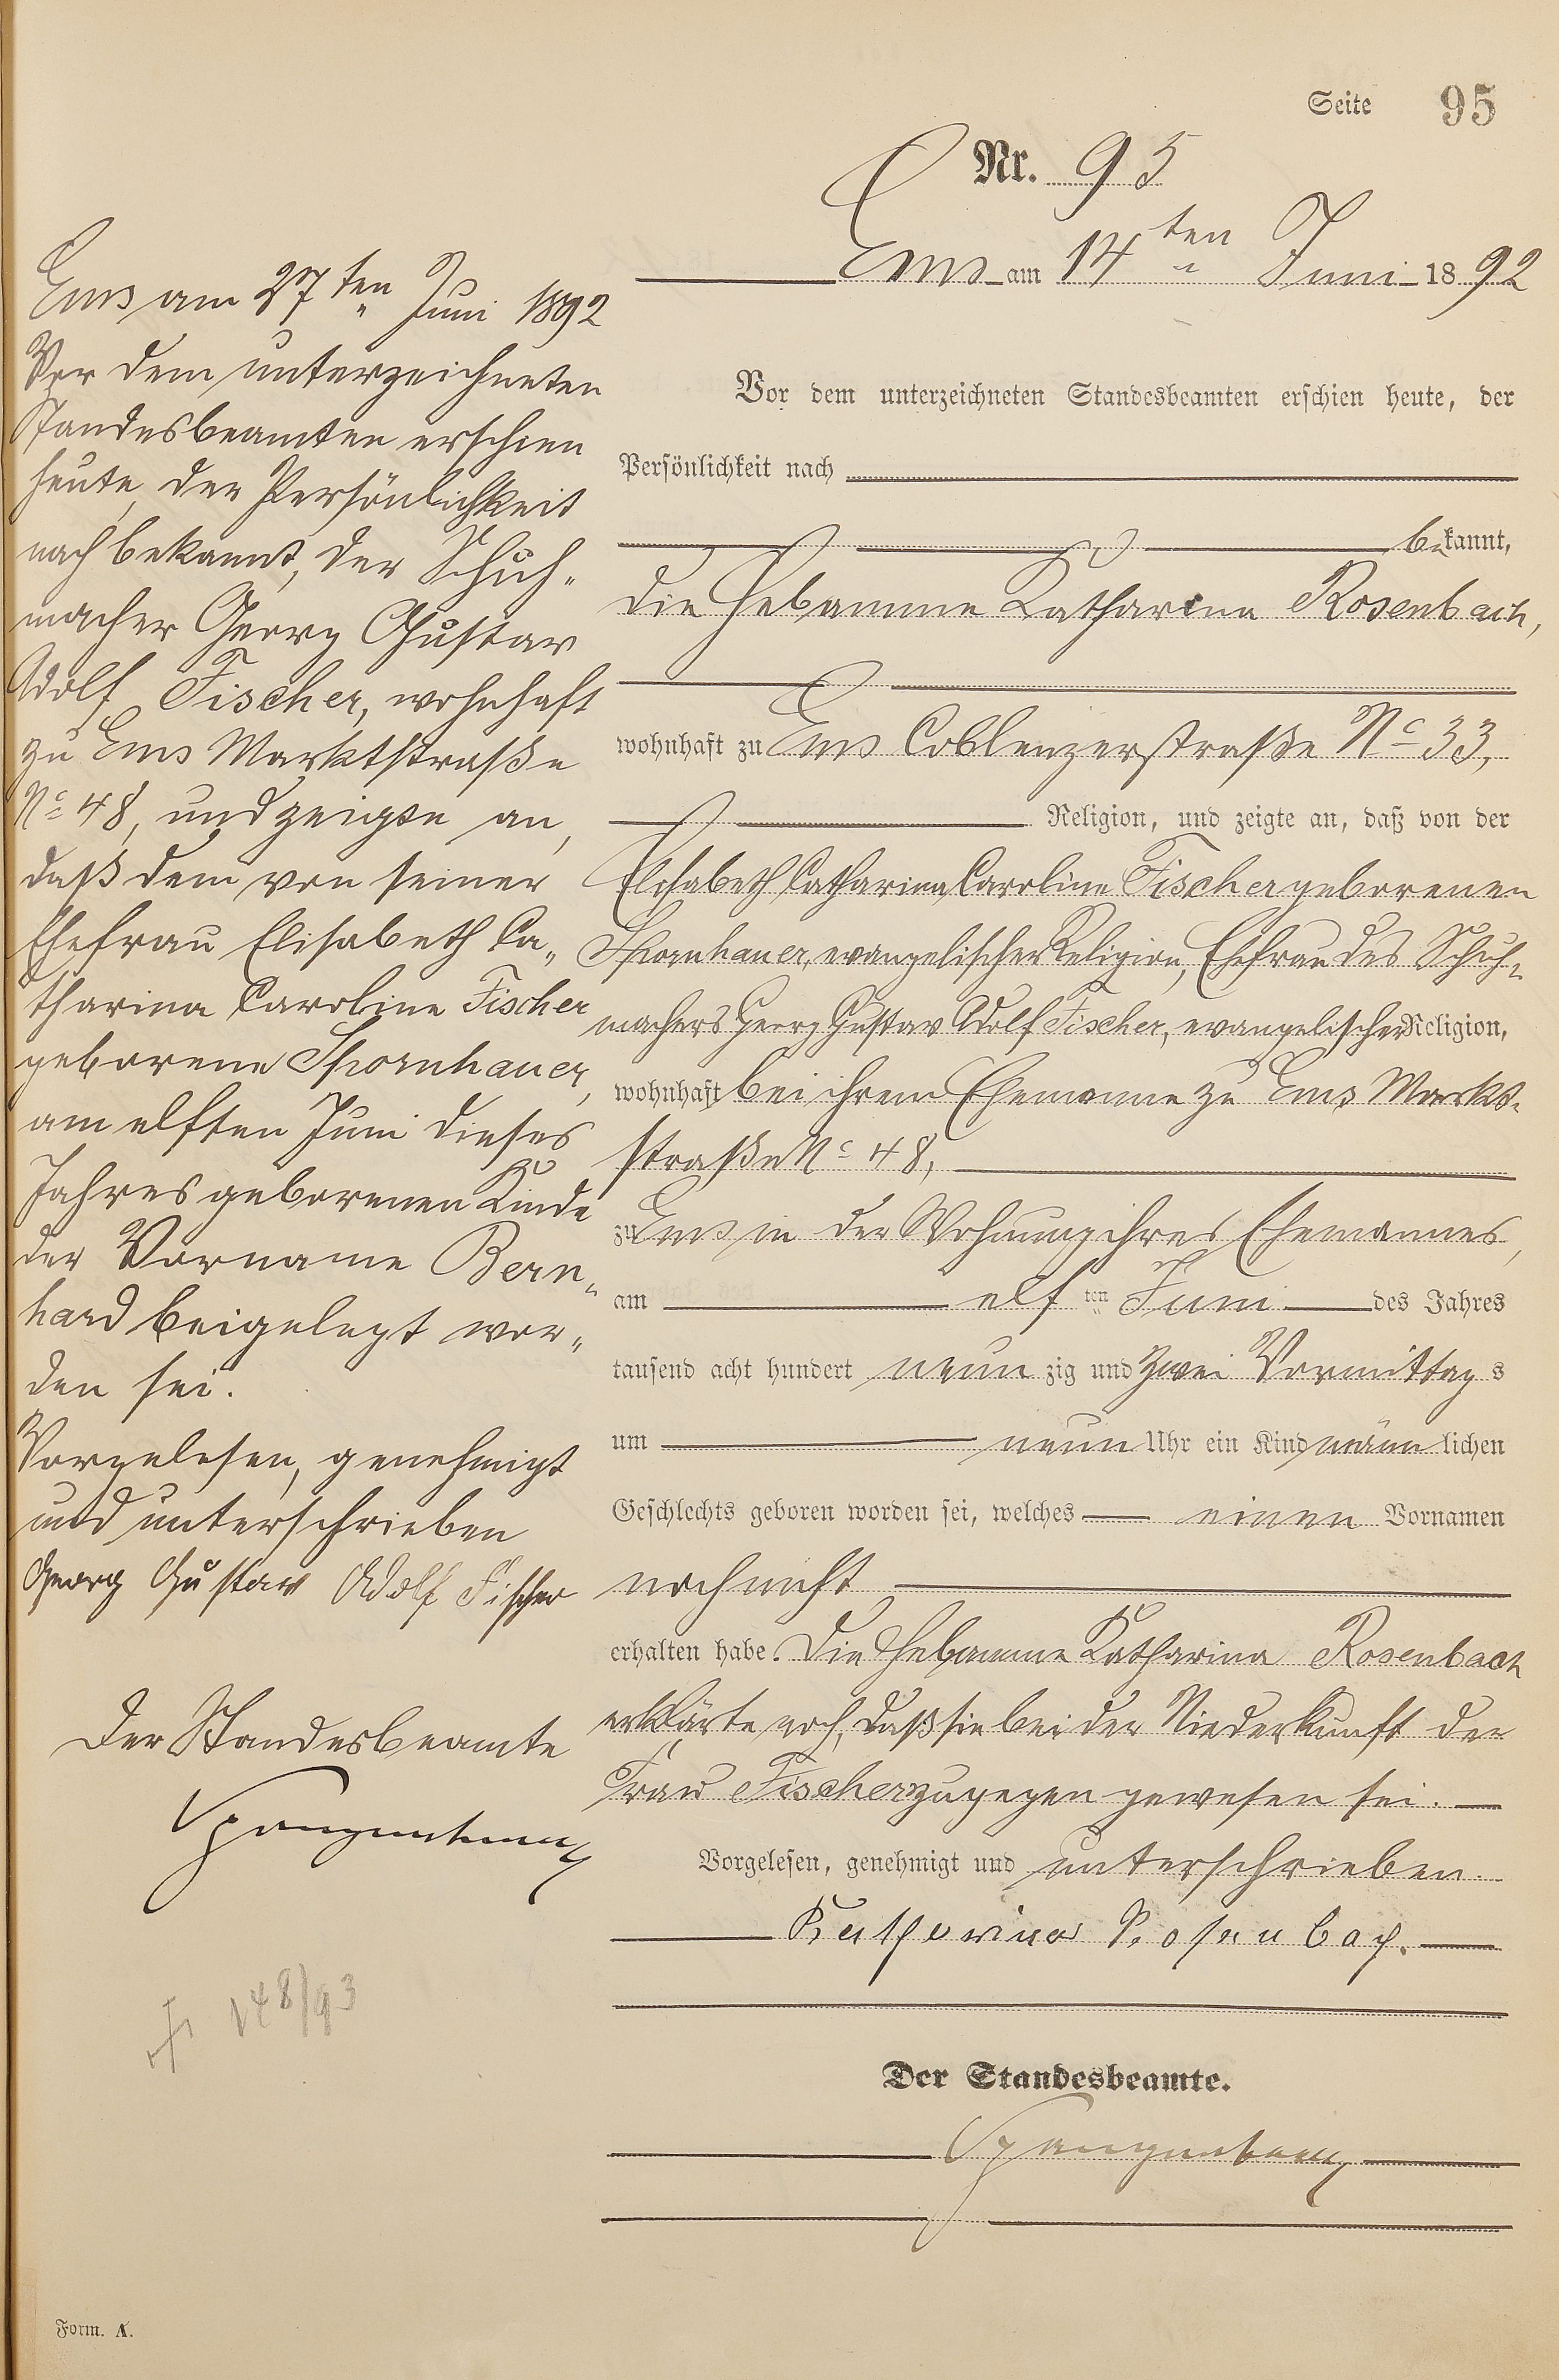 Seite 95
Nr. 95
Ems am 14ten Juni 1892
Vor dem unterzeichneten Standesbeamten erschien heute, der
Persönlichkeit nach
bekannt,
die Hebamme Katharina Rosenbach,
wohnhaft zu Ems Coblenzerstraße No 33,
Religion, und zeigte an, daß von der
Elisabeth Catharina Caroline Fischer geborenen
Spornhauer, evangelischer Religion, Ehefrau des Schuh-
machers Georg Gustav Adolf Fischer, evangelischer Religion,
wohnhaft bei ihrem Ehemanne zu Ems Markt-
straße No 48,
zu Ems in der Wohnung ihres Ehemannes,
am elften Juni des Jahres
tausend acht hundert neunzig und zwei Vormittags
um neun Uhr ein Kind männlichen
Geschlechts geboren worden sei, welches einen Vornamen
noch nicht
erhalten habe. Die Hebamme Katharina Rosenbach
erklärte noch, daß sie bei der Niederkunft der
Frau Fischer zugegen gewesen sei.
Vorgelesen, genehmigt und unterschrieben.
Katharina Rosenbach.
Der Standesbeamte.
Ems am 27ten Juni 1892
Vor dem unterzeichneten
Standesbeamten erschien
heute, der Persönlichkeit
nach bekannt, der Schuh-
macher Georg Gustav
Adolf Fischer, wohnhaft
zu Ems Marktstraße
No 48, und zeigte an,
daß dem von seiner
Ehefrau Elisabeth Ca-
tharina Caroline Fischer
geborene Spornhauer,
am elften Juni dieses
Jahres geborenen Kinde
der Vorname Bern-
hard beigelegt wor-
den sei.
Vorgelesen, genehmigt
und unterschrieben
Georg Gustav Adolf Fischer
Der Standesbeamte
† 148/93
Form. A.